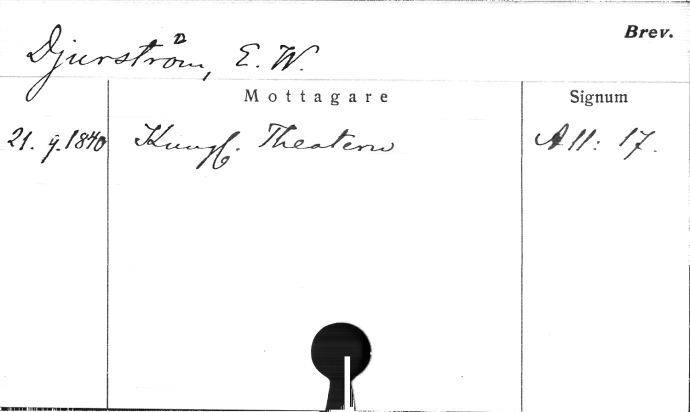 Brev.
Djurström, E. W.
Mottagare Signum
21. 9. 1840 Kungl. Theatern All: 17.